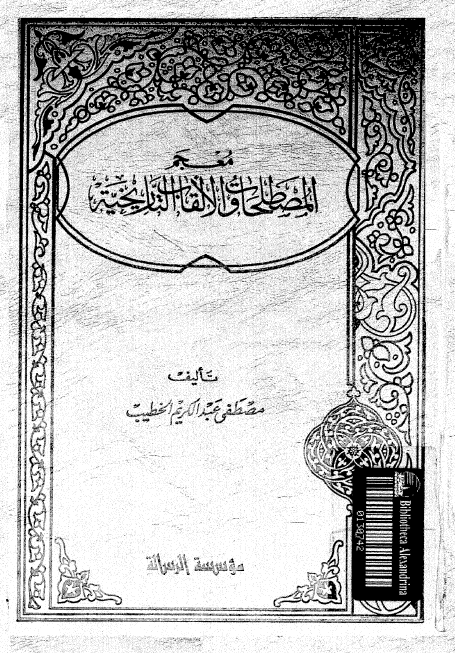 مُعْجَم
المصطلحات والألقاب التاريخية
تأليف
مصطفى عبد الكريم الخطيب
مؤسسة الرسالة
Bibliotheca Alexandrina
0130742